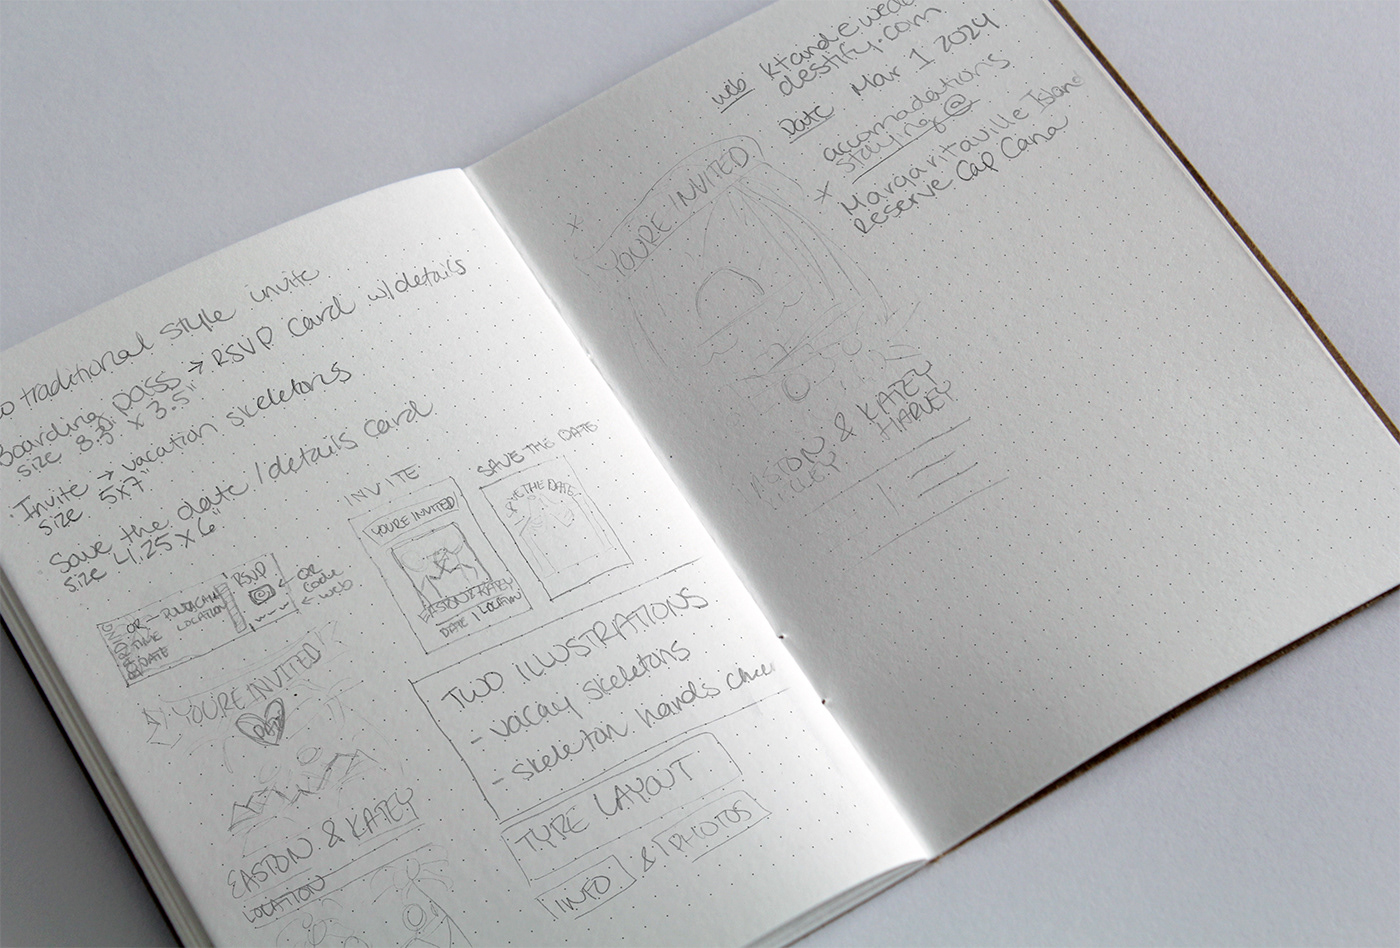 traditional style invite
Boarding pass → RSVP card w/details
size 8.5" x 3.5"
Invite → vacation skeletons
size 5x7"
Save the date / details card
size 4.25 x 6"
INVITE
YOU'RE INVITED
EASTON & KATEY
DATE | LOCATION
SAVE THE DATE
THE DATE
BOARDING
TIME
DATE
LOCATION
RSVP
← QR
code
← web
YOU'RE INVITED
EASTON & KATEY
LOCATION
TWO ILLUSTRATIONS
- vacay skeletons
- skeleton hands
TYPE LAYOUT
INFO & PHOTOS
web ktande
destify.com
Date Mar 1 2024
accomadations
staying @
x Margaritaville Island
Reserve Cap Cana
x
YOU'RE INVITED
& KATEY
HARVEY